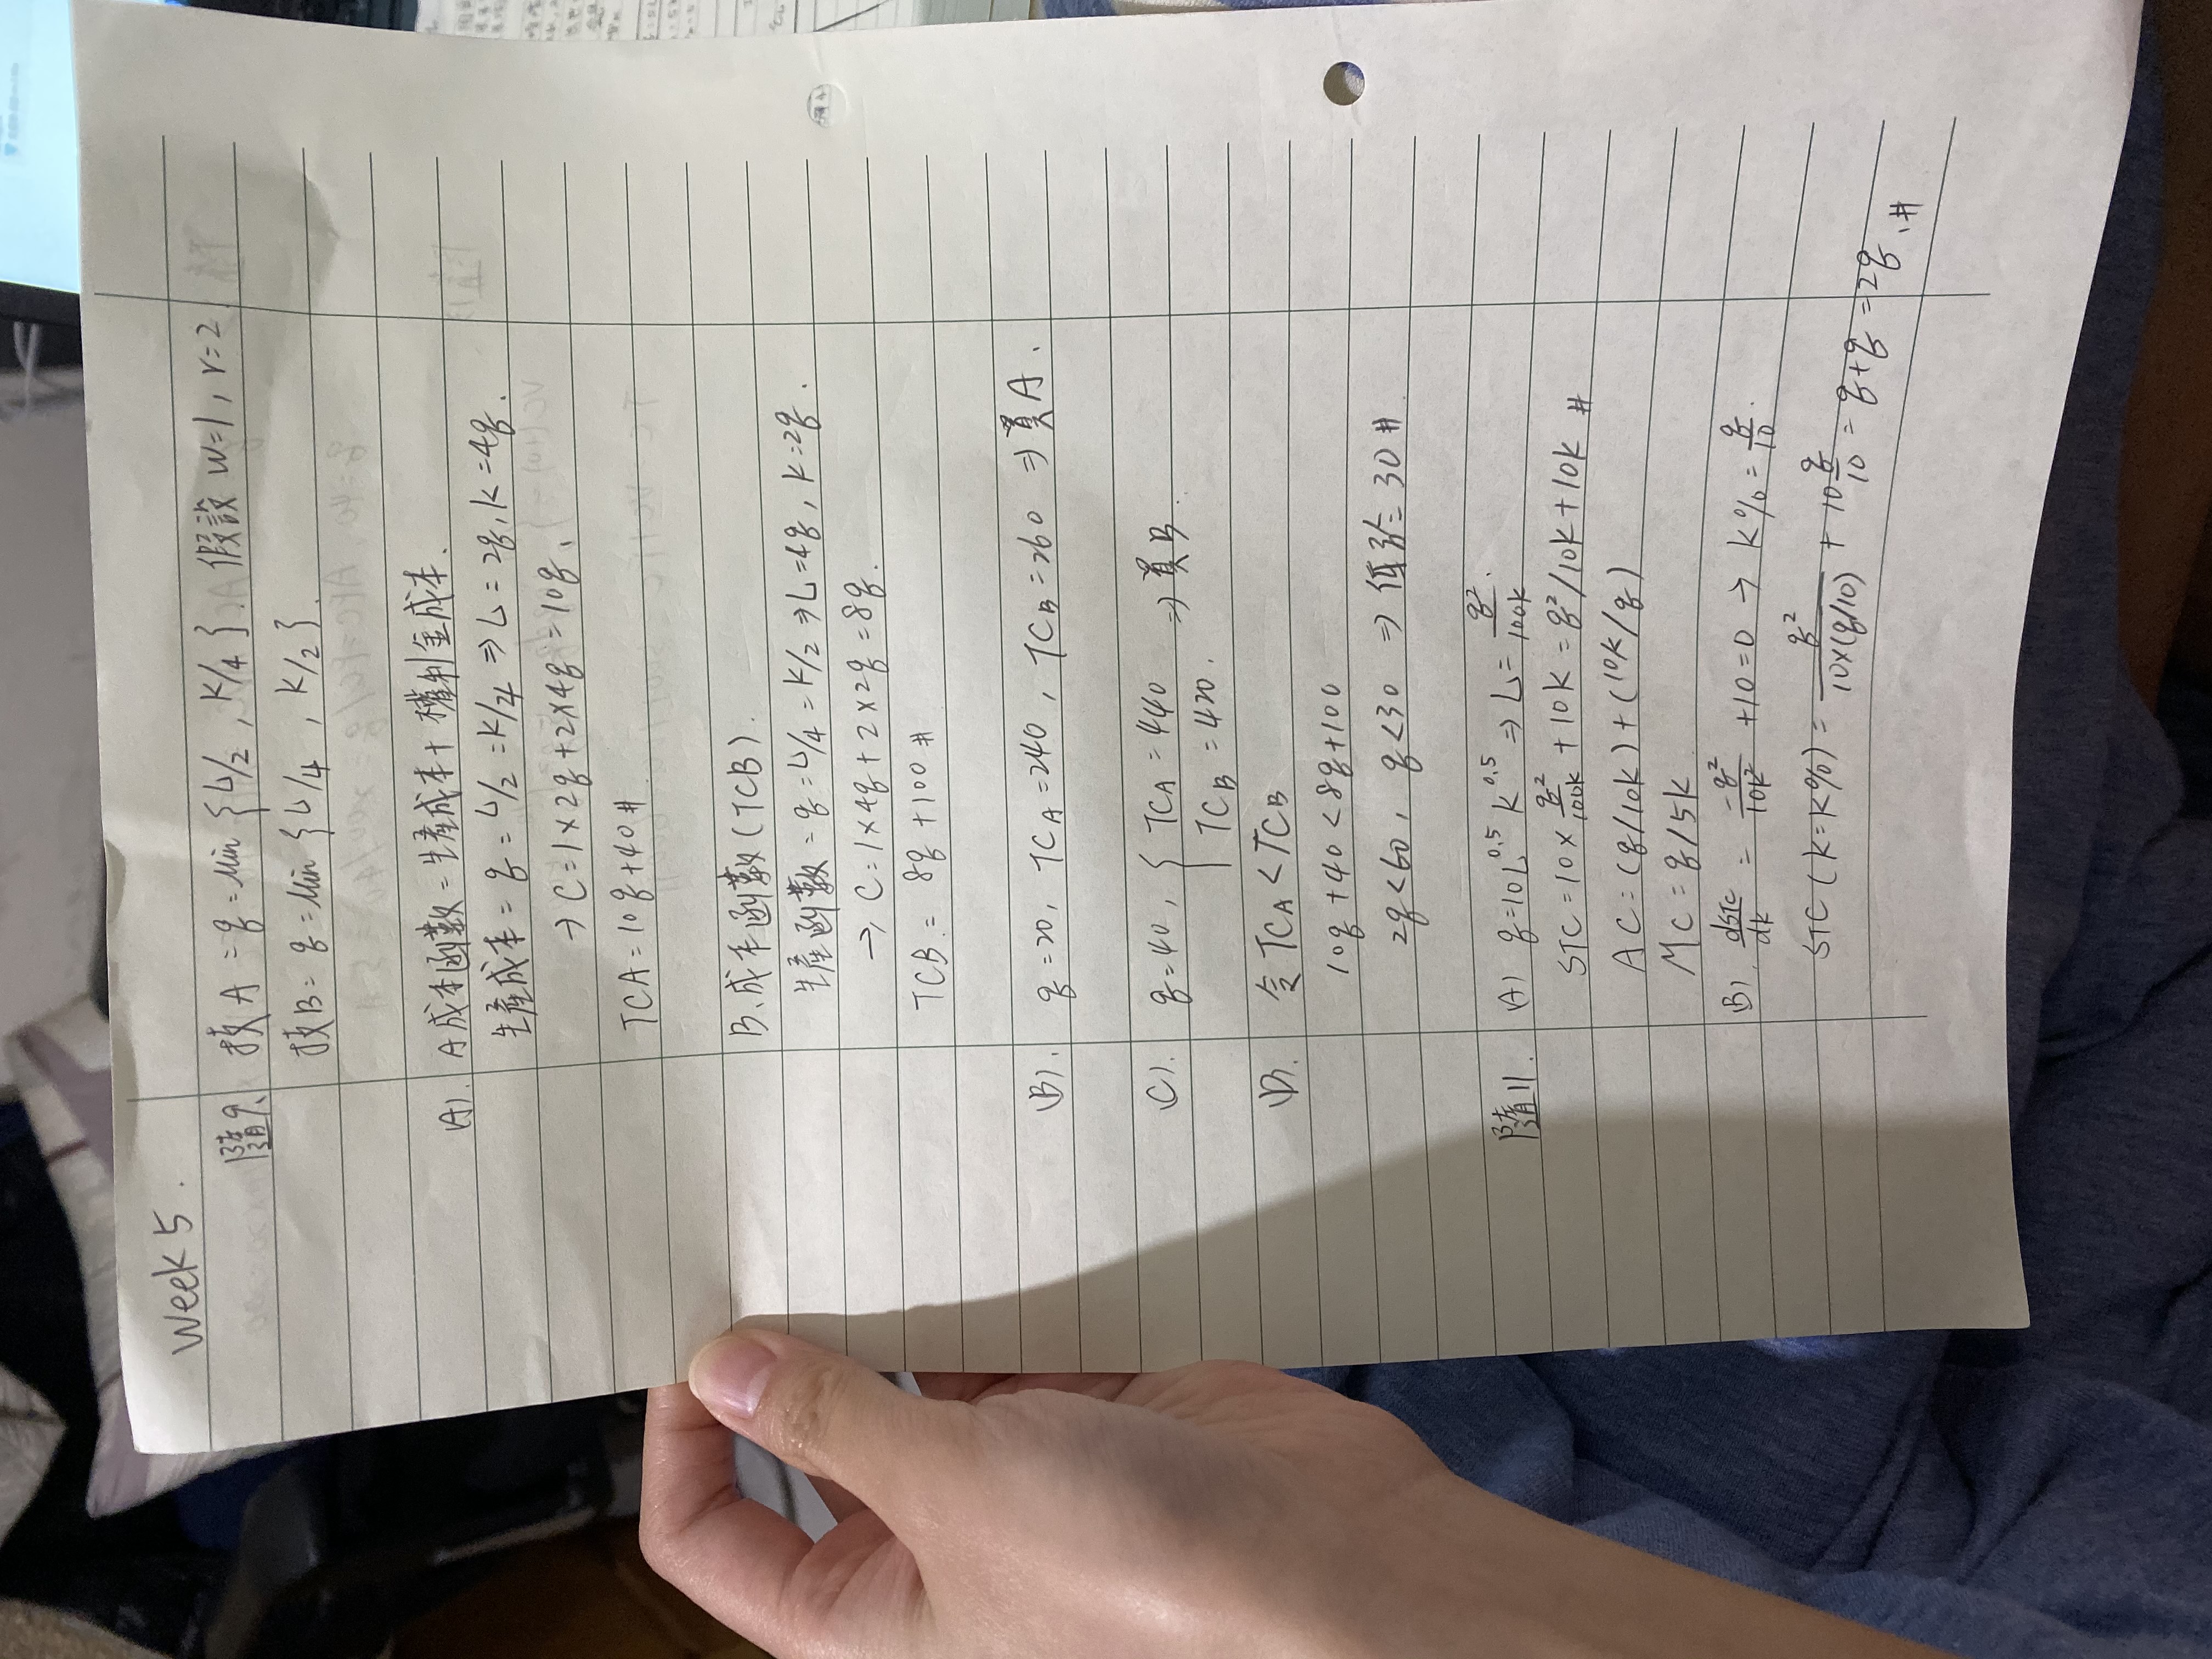 Week 5.
隨9. 技A = q = Min { L/2 , K/4 }. 假設 w=1, r=2
技B = q = Min { L/4 , K/2 }.
(A). A成本函數 = 生產成本 + 權利金成本.
生產成本 = q = L/2 = K/4 ⇒ L = 2q, K = 4q.
→ C = 1×2q + 2×4q = 10q.
TCA = 10q + 40 #
B.成本函數 (TCB).
生產函數 = q = L/4 = K/2 ⇒ L = 4q, K = 2q.
→ C = 1×4q + 2×2q = 8q.
TCB = 8q + 100 #
(B). q = 20, TCA = 240, TCB = 260 ⇒ 買A.
(C). q = 40, { TCA = 440 ⇒ 買B.
TCB = 420.
(D). 令 TCA < TCB
10q + 40 < 8q + 100
2q < 60, q < 30 ⇒ 低於 30 #
隨11. (A) q = 10L^0.5 K^0.5 ⇒ L = q²/100K.
STC = 10 × q²/100K + 10K = q²/10K + 10K #
AC = (q/10K) + (10K/q)
MC = q/5K
B). dSTC/dK = -q²/10K² + 10 = 0 → K% = q/10.
STC (K=K%) = q²/10×(q/10) + 10 q/10 = q+q = 2q. #